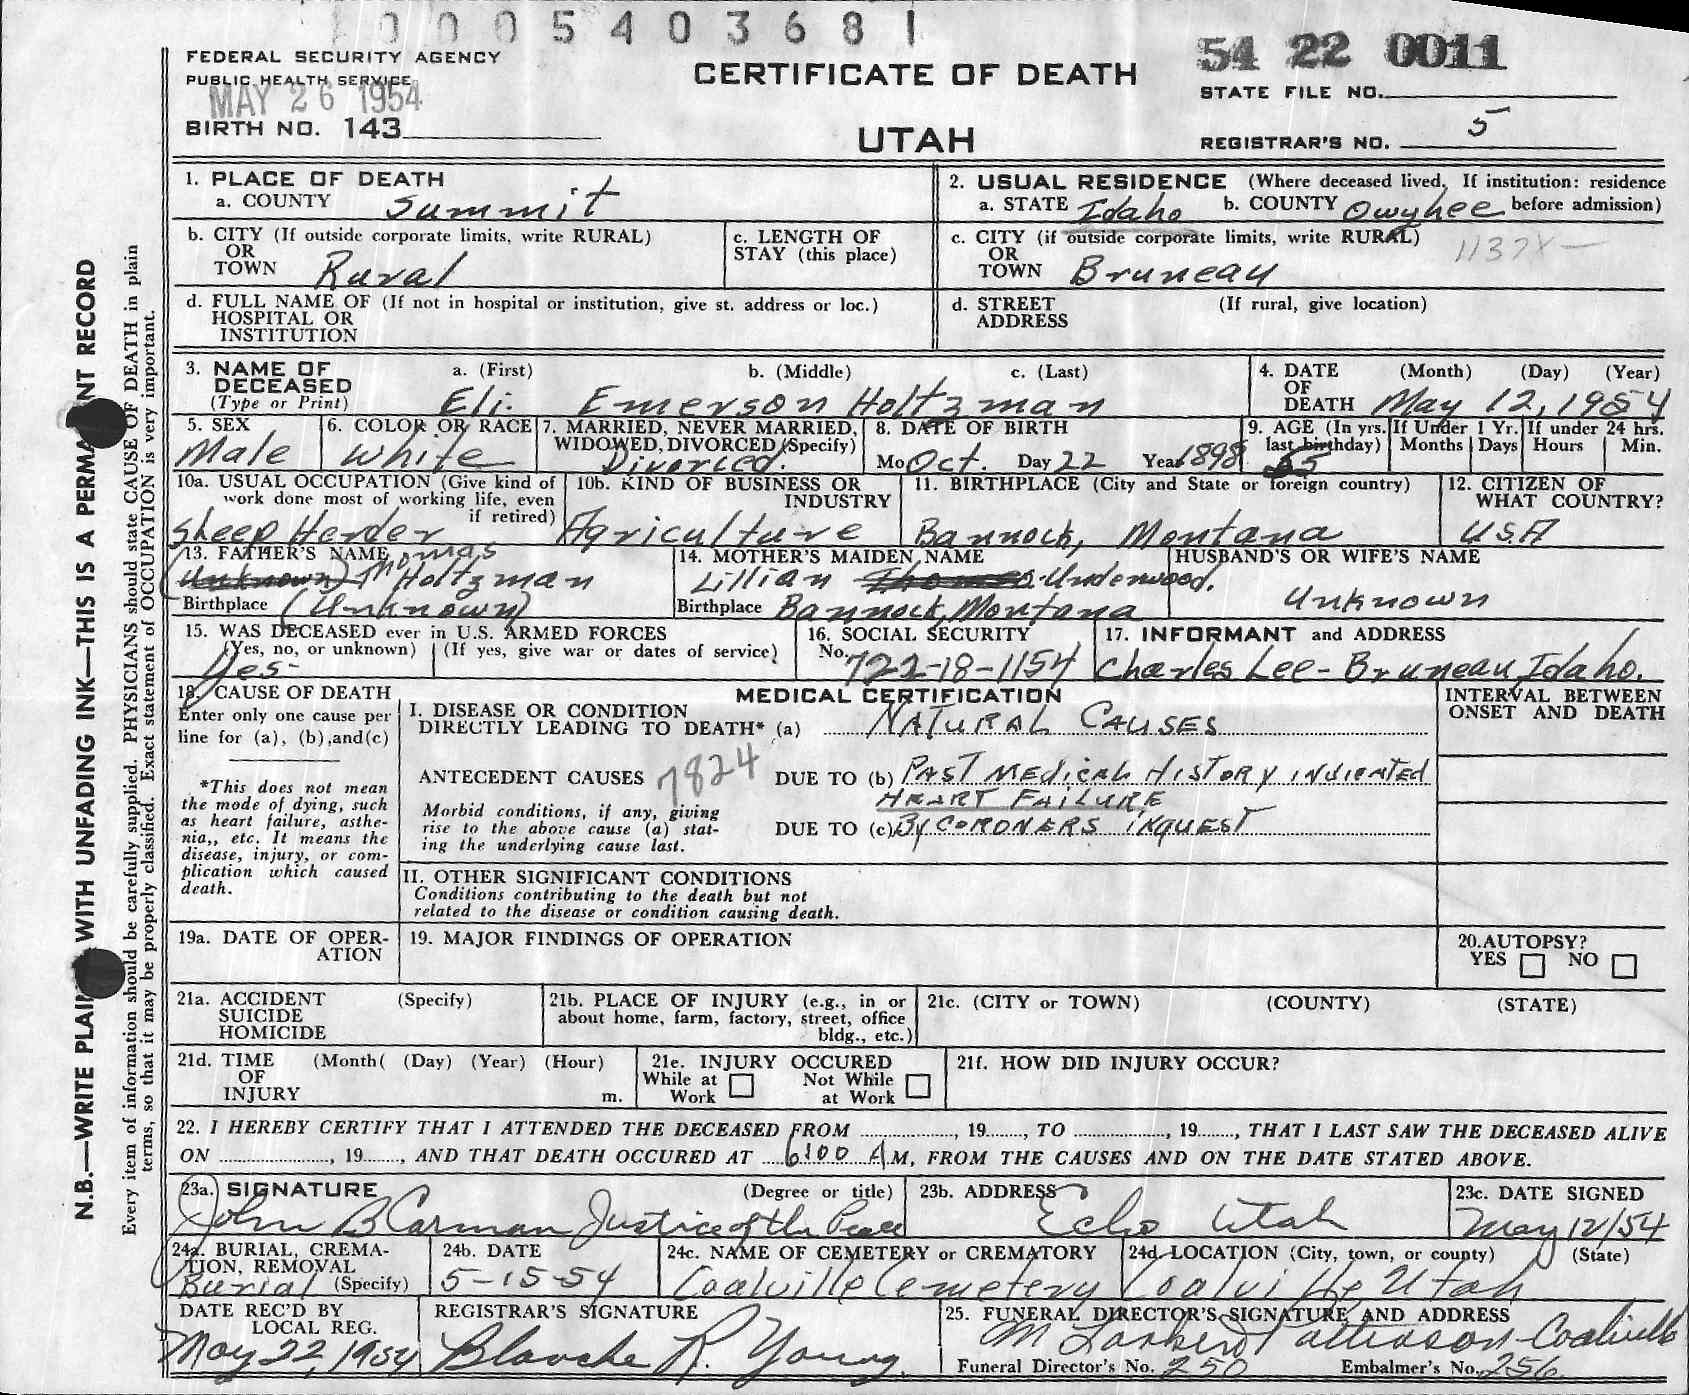 0005403681
FEDERAL SECURITY AGENCY
PUBLIC HEALTH SERVICE
MAY 26 1954
BIRTH NO. 143
CERTIFICATE OF DEATH
UTAH
54 22 0011
STATE FILE NO.
REGISTRAR'S NO. 5
1. PLACE OF DEATH
a. COUNTY Summit
2. USUAL RESIDENCE (Where deceased lived. If institution: residence
a. STATE Idaho b. COUNTY Owyhee before admission)
b. CITY (If outside corporate limits, write RURAL)
OR
TOWN Rural
c. LENGTH OF
STAY (this place)
c. CITY (if outside corporate limits, write RURAL)
OR
TOWN Bruneau
1137X-
d. FULL NAME OF (If not in hospital or institution, give st. address or loc.)
HOSPITAL OR
INSTITUTION
d. STREET (If rural, give location)
ADDRESS
3. NAME OF a. (First) b. (Middle) c. (Last)
DECEASED
(Type or Print) Eli. Emerson Holtzman
4. DATE (Month) (Day) (Year)
OF
DEATH May 12, 1954
5. SEX
Male
6. COLOR OR RACE
White
7. MARRIED, NEVER MARRIED,
WIDOWED, DIVORCED (Specify)
Divorced.
8. DATE OF BIRTH
Mo Oct. Day 22 Year 1898
9. AGE (In yrs. If Under 1 Yr. If under 24 hrs.
last birthday) Months Days Hours Min.
55
10a. USUAL OCCUPATION (Give kind of
work done most of working life, even
if retired)
Sheep Herder
10b. KIND OF BUSINESS OR
INDUSTRY
Agriculture
11. BIRTHPLACE (City and State or foreign country)
Bannock, Montana
12. CITIZEN OF
WHAT COUNTRY?
USA
13. FATHER'S NAME
(Unknown) Thomas Holtzman
Birthplace (Unknown)
14. MOTHER'S MAIDEN NAME
Lillian Underwood.
Birthplace Bannock, Montana
HUSBAND'S OR WIFE'S NAME
Unknown
15. WAS DECEASED ever in U.S. ARMED FORCES
(Yes, no, or unknown) (If yes, give war or dates of service)
Yes-
16. SOCIAL SECURITY
No. 722-18-1154
17. INFORMANT and ADDRESS
Charles Lee - Bruneau, Idaho.
18. CAUSE OF DEATH
Enter only one cause per
line for (a), (b), and (c)
*This does not mean
the mode of dying, such
as heart failure, asthe-
nia,, etc. It means the
disease, injury, or com-
plication which caused
death.
MEDICAL CERTIFICATION
I. DISEASE OR CONDITION
DIRECTLY LEADING TO DEATH* (a) NATURAL CAUSES
ANTECEDENT CAUSES 7824
Morbid conditions, if any, giving
rise to the above cause (a) stat-
ing the underlying cause last.
DUE TO (b) PAST MEDICAL HISTORY INDICATED
HEART FAILURE
DUE TO (c) BY CORONERS INQUEST
INTERVAL BETWEEN
ONSET AND DEATH
II. OTHER SIGNIFICANT CONDITIONS
Conditions contributing to the death but not
related to the disease or condition causing death.
19a. DATE OF OPER-
ATION
19. MAJOR FINDINGS OF OPERATION
20. AUTOPSY?
YES NO
21a. ACCIDENT (Specify)
SUICIDE
HOMICIDE
21b. PLACE OF INJURY (e.g., in or
about home, farm, factory, street, office
bldg., etc.)
21c. (CITY or TOWN) (COUNTY) (STATE)
21d. TIME (Month( (Day) (Year) (Hour)
OF
INJURY m.
21e. INJURY OCCURED
While at Not While
Work at Work
21f. HOW DID INJURY OCCUR?
22. I HEREBY CERTIFY THAT I ATTENDED THE DECEASED FROM ............, 19......, TO ............, 19......, THAT I LAST SAW THE DECEASED ALIVE
ON ............, 19......, AND THAT DEATH OCCURED AT 6:00 A M, FROM THE CAUSES AND ON THE DATE STATED ABOVE.
23a. SIGNATURE (Degree or title)
John B Carman Justice of the Peace
23b. ADDRESS
Echo Utah
23c. DATE SIGNED
May 12/54
24a. BURIAL, CREMA-
TION, REMOVAL
Burial (Specify)
24b. DATE
5-15-54
24c. NAME OF CEMETERY or CREMATORY
Coalville Cemetery
24d. LOCATION (City, town, or county) (State)
Coalville, Utah
DATE REC'D BY
LOCAL REG.
May 22, 1954
REGISTRAR'S SIGNATURE
Blanche R. Young.
25. FUNERAL DIRECTOR'S SIGNATURE AND ADDRESS
M Lambert Patterson - Coalville
Funeral Director's No. 250 Embalmer's No. 256
N.B.—WRITE PLAIN WITH UNFADING INK—THIS IS A PERMANENT RECORD
Every item of information should be carefully supplied. PHYSICIANS should state CAUSE OF DEATH in plain
terms, so that it may be properly classified. Exact statement of OCCUPATION is very important.